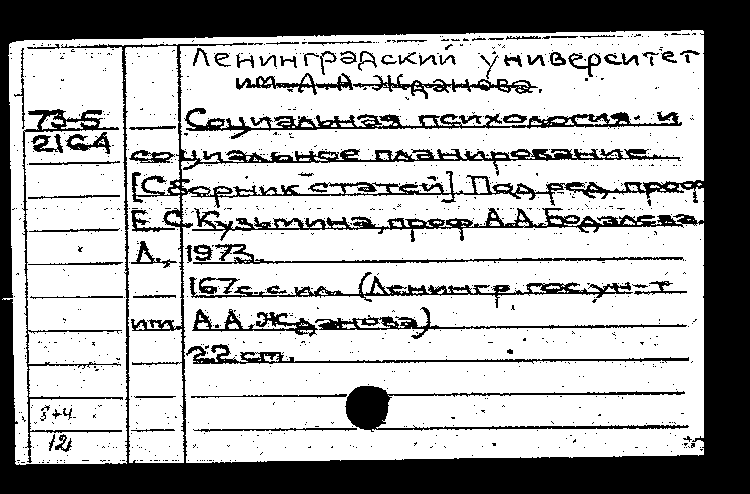 Ленинградский университет
им. А. А. Жданова.
73-5 Социальная психология и
2164 социальное планирование.
[Сборник статей]. Под ред. проф
Е. С. Кузьмина, проф. А. А. Бодалева.
Л., 1973.
167 с. с ил. (Ленингр. гос. ун-т
им. А. А. Жданова)
22 см.
8+4
12